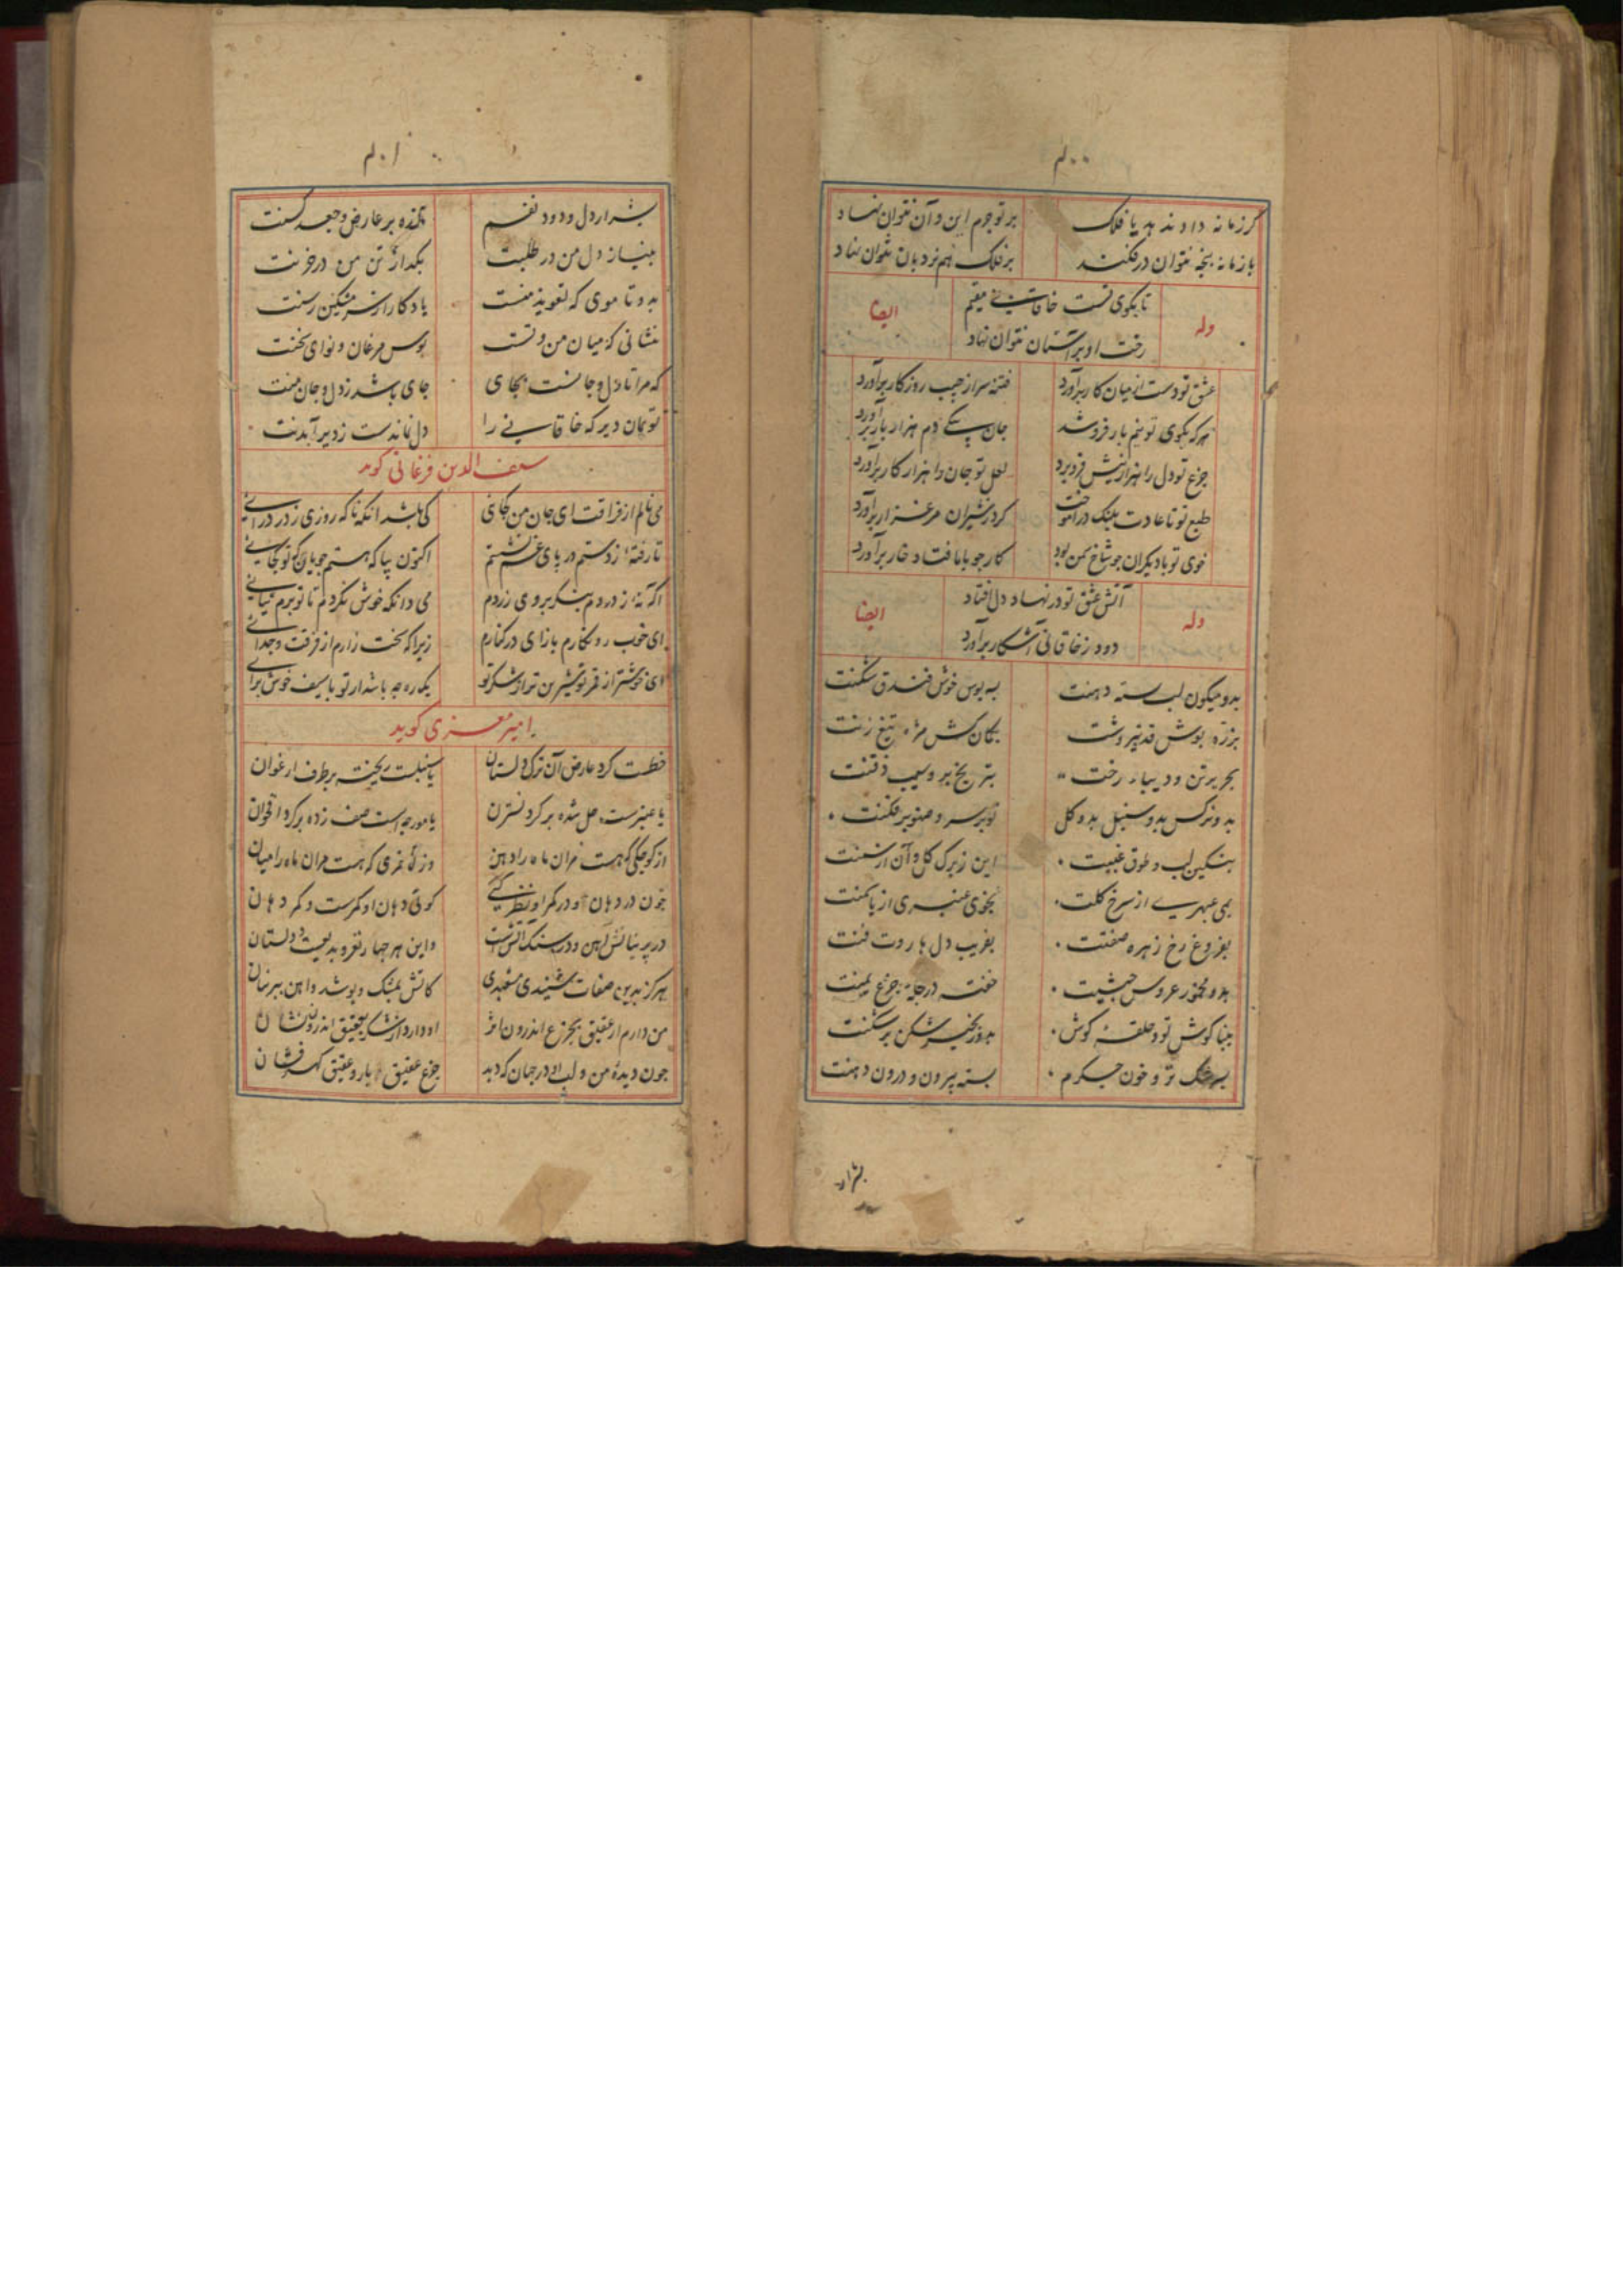 ۴۰۰
گر زمانه داد ندهد یا فلک بر تو جرم این و آن نتوان نهاد
با زمانه پنجه نتوان درفکند بر فلک هم نردبان نتوان نهاد
وله تا بکوی تست خاقانی مقیم ایضا
رخت او بر آستان نتوان نهاد
عشق تو دست از میان کار برآورد فتنه سر از جیب روزکار برآورد
هر که بکوی تو نیم بار فروشد جان بیکی دم هزار بار برآورد
جزع تو دل را هزار نیش فروبرد لعل تو جان را هزار کار برآورد
طبع تو تا عادت پلنک درآموخت کرد ز شیران مرغزار برآورد
خوی تو با دیکران چو شاخ سمن بود کار چو با ما فتاد خار برآورد
وله آتش عشق تو در نهاد دل افتاد ایضا
دود ز خاقانی آشکار برآورد
بدو میکون لب و پسته دهنت به سه بوس خوش فندق شکنت
بزره پوش قد تیر وشت بکمان کش مژه تیغ زنت
بحریر تن و دیبای رخت بترنج بر و سیب ذقنت
بدو نرکس بدو سنبل بدو کل بر سر سرو صنوبر فکنت
بنکین لب و طوق غببت این ز برک کل و آن از سمنت
بمی عبهری از سرخ کلت بخوی عنبری از یاسمنت
بفروغ رخ زهره صفتت بفریب دل هاروت فنت
بدو مخمور عروس حبشیت خفته در حجله جزع یمنت
ببناکوش تو و حلقهٔ کوش بدو زنجیر شکن بر شکنت
بسرشک تر و خون جکرم بسته بیرون و درون دهنت
بشرار
۴۰۱
بشرار دل و دود نفسم مانده بر عارض و جعد کشنت
بنیاز دل من در طلبت بکداز تن من در حزنت
بدو تا موی که تعویذ منست یادکار از سر مشکین رسنت
بنشانی که میان من و تست نوش مرغان و نوای سخنت
که مرا تا دل و جانست بجای جای باشد ز دل و جان منت
تو بمان دیر که خاقانی را دل نماندست ز دیر آمدنت
سیف الدین فرغانی کوید
می نالم از فراقت ای جان من کجائی کی باشد آنکه ناکه روزی ز در درآئی
تا رفته‌ٔ ز دستم در پای غم نشستم اکنون بیا که هستم جویان کو تو کجائی
آکه نه ز دردم بنکر بروی زردم می دانکه خوش نکردم تا تو برم نیائی
ای خوب روزکارم باز آی در کنارم زیرا که سخت زارم از فرقت و جدائی
ای خوشتر از قمر تو شیرین تر از شکر تو یکره چه باشد ار تو با سیف خوش برائی
امیر معزی کوید
خطست کرد عارض آن ترک دلستان یا سنبلست ریخته بر طرف ارغوان
یا عنبرست حل شده بر کرد نسترن یا مورچه است صف زده بر کرد اقحوان
از کوچکی که هست مران ماه را دهن وز لاغری که هست مران ماه را میان
چون در دهان او و در کمر او نظر کنی کوئی دهان او کمرست و کمر دهان
در پرنیانش آهن و در سنک آتش است واین هر چهار نغز و بدیعست دلستان
هرکز بدین صفات شنیدی مشعبدی کاتش بمشک و پوشد و آهن بپرنیان
من دارم از عقیق بجزع اندرون اثر او دارد از سرشک بعقیق اندرون نشان
چون دیدهٔ من و لب او در جهان که دید جزع عقیق بار و عقیق کهر فشان